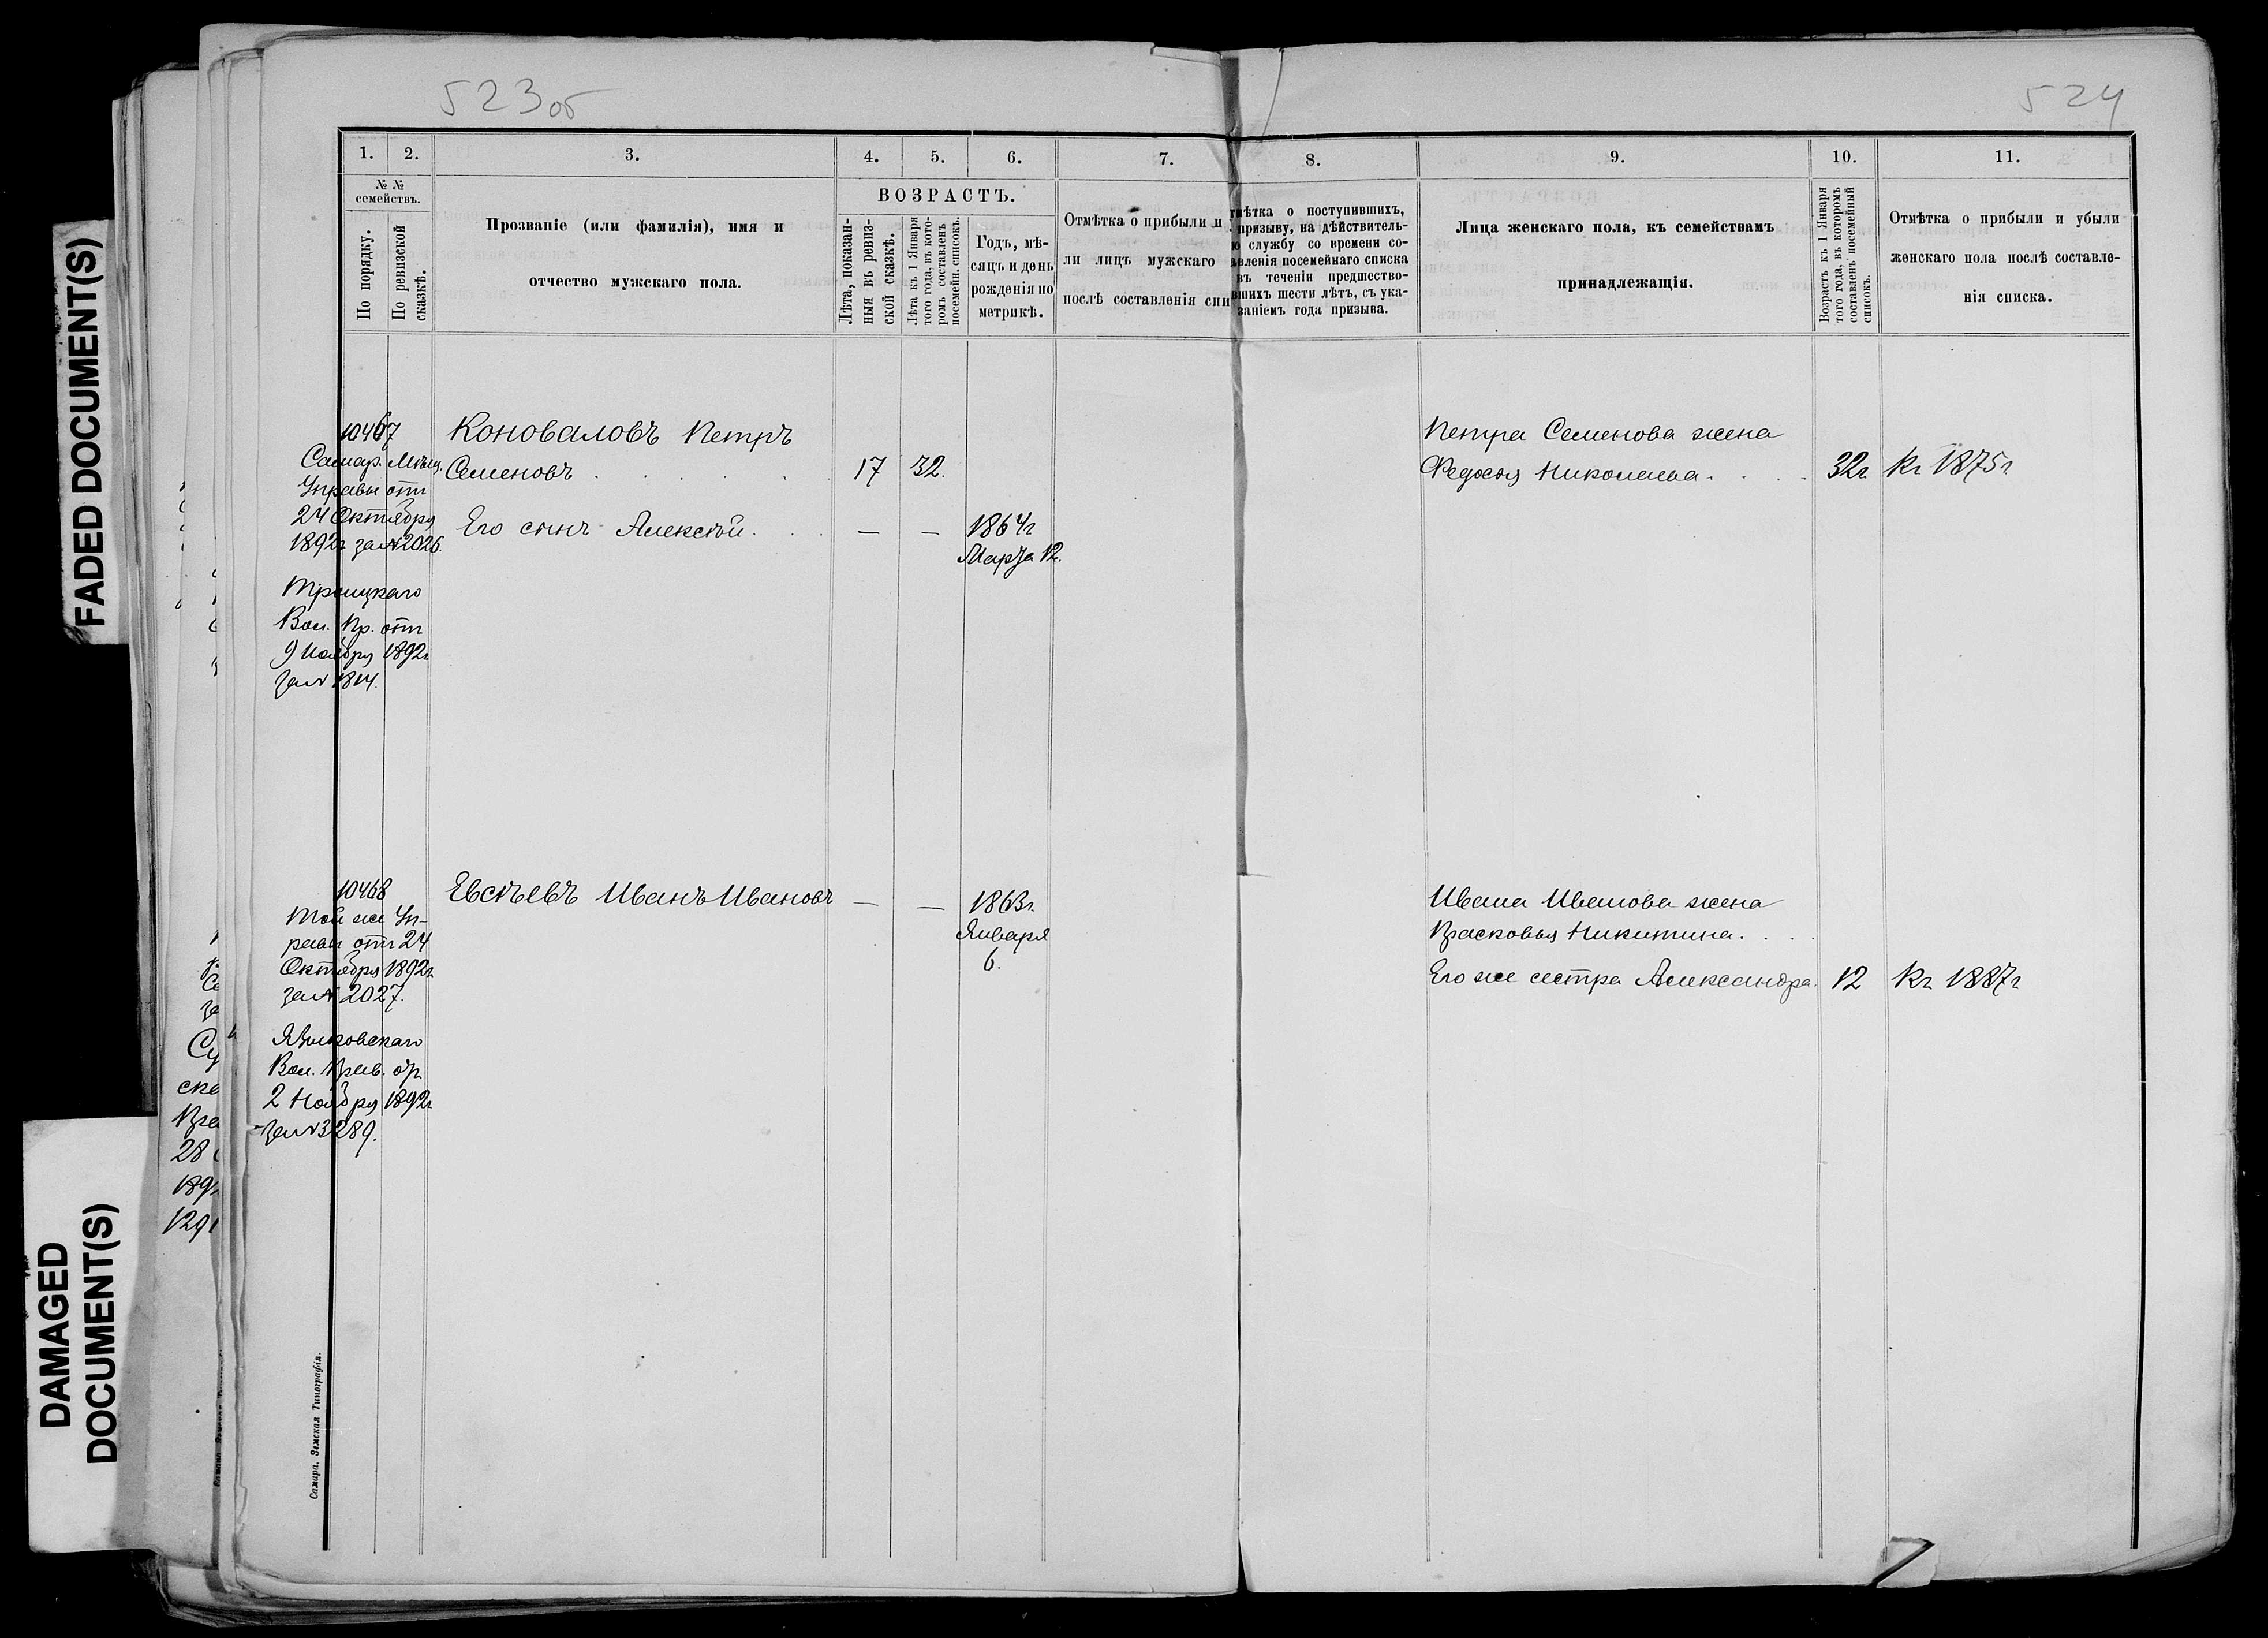 FADED DOCUMENT(S)
DAMAGED
DOCUMENT(S)
523об
524
1.
2.
3.
4.
5.
6.
7.
8.
9.
10.
11.
№ №
семействъ.
По порядку.
По ревизской
сказкѣ.
Прозваніе (или фамилія), имя и
отчество мужскаго пола.
ВОЗРАСТЪ.
Лѣта, показан-
ныя въ ревиз-
ской сказкѣ.
Лѣта къ 1 Января
того года, въ кото-
ромъ составленъ
посемейн. списокъ.
Годъ, мѣ-
сяцъ и день
рожденія по
метрикѣ.
Отмѣтка о прибыли и
ли лицъ мужскаго
послѣ составленія спи
тмѣтка о поступившихъ,
призыву, на дѣйствитель-
ю службу со времени со-
авленія посемейнаго списка
въ теченіи предшество-
вшихъ шести лѣтъ, съ ука-
заніемъ года призыва.
Лица женскаго пола, къ семействамъ
принадлежащія.
Возрастъ къ 1 Января
того года, въ которомъ
составленъ посемейный
списокъ.
Отмѣтка о прибыли и убыли
женскаго пола послѣ составле-
нія списка.
10467
Самар. Мѣщ.
Управы отъ
24 Октября
1892г за № 2026.
Троицкаго
Вол. Пр. отъ
9 Ноября 1892г
за № 1814.
Коноваловъ Петръ
Семеновъ . . . . 17 32.
Его сынъ Алексѣй. . . — — 1864г
Марта 12.
Петра Семенова жена
Федосья Николаева. . . 32г Кг 1875г
10468
Той же Уп-
равы отъ 24
Октября 1892г
за № 2027.
Языковскаго
Вол. Прав. от
2 Ноября 1892г
за № 3289.
Евсѣевъ Иванъ Ивановъ — — 1863г.
Января
6.
Ивана Иванова жена
Прасковья Никитина. . .
Его же сестра Александра. 12 Кг 1887г
Самара. Земская Типографія.
Су
ске
Пра
28
189
129